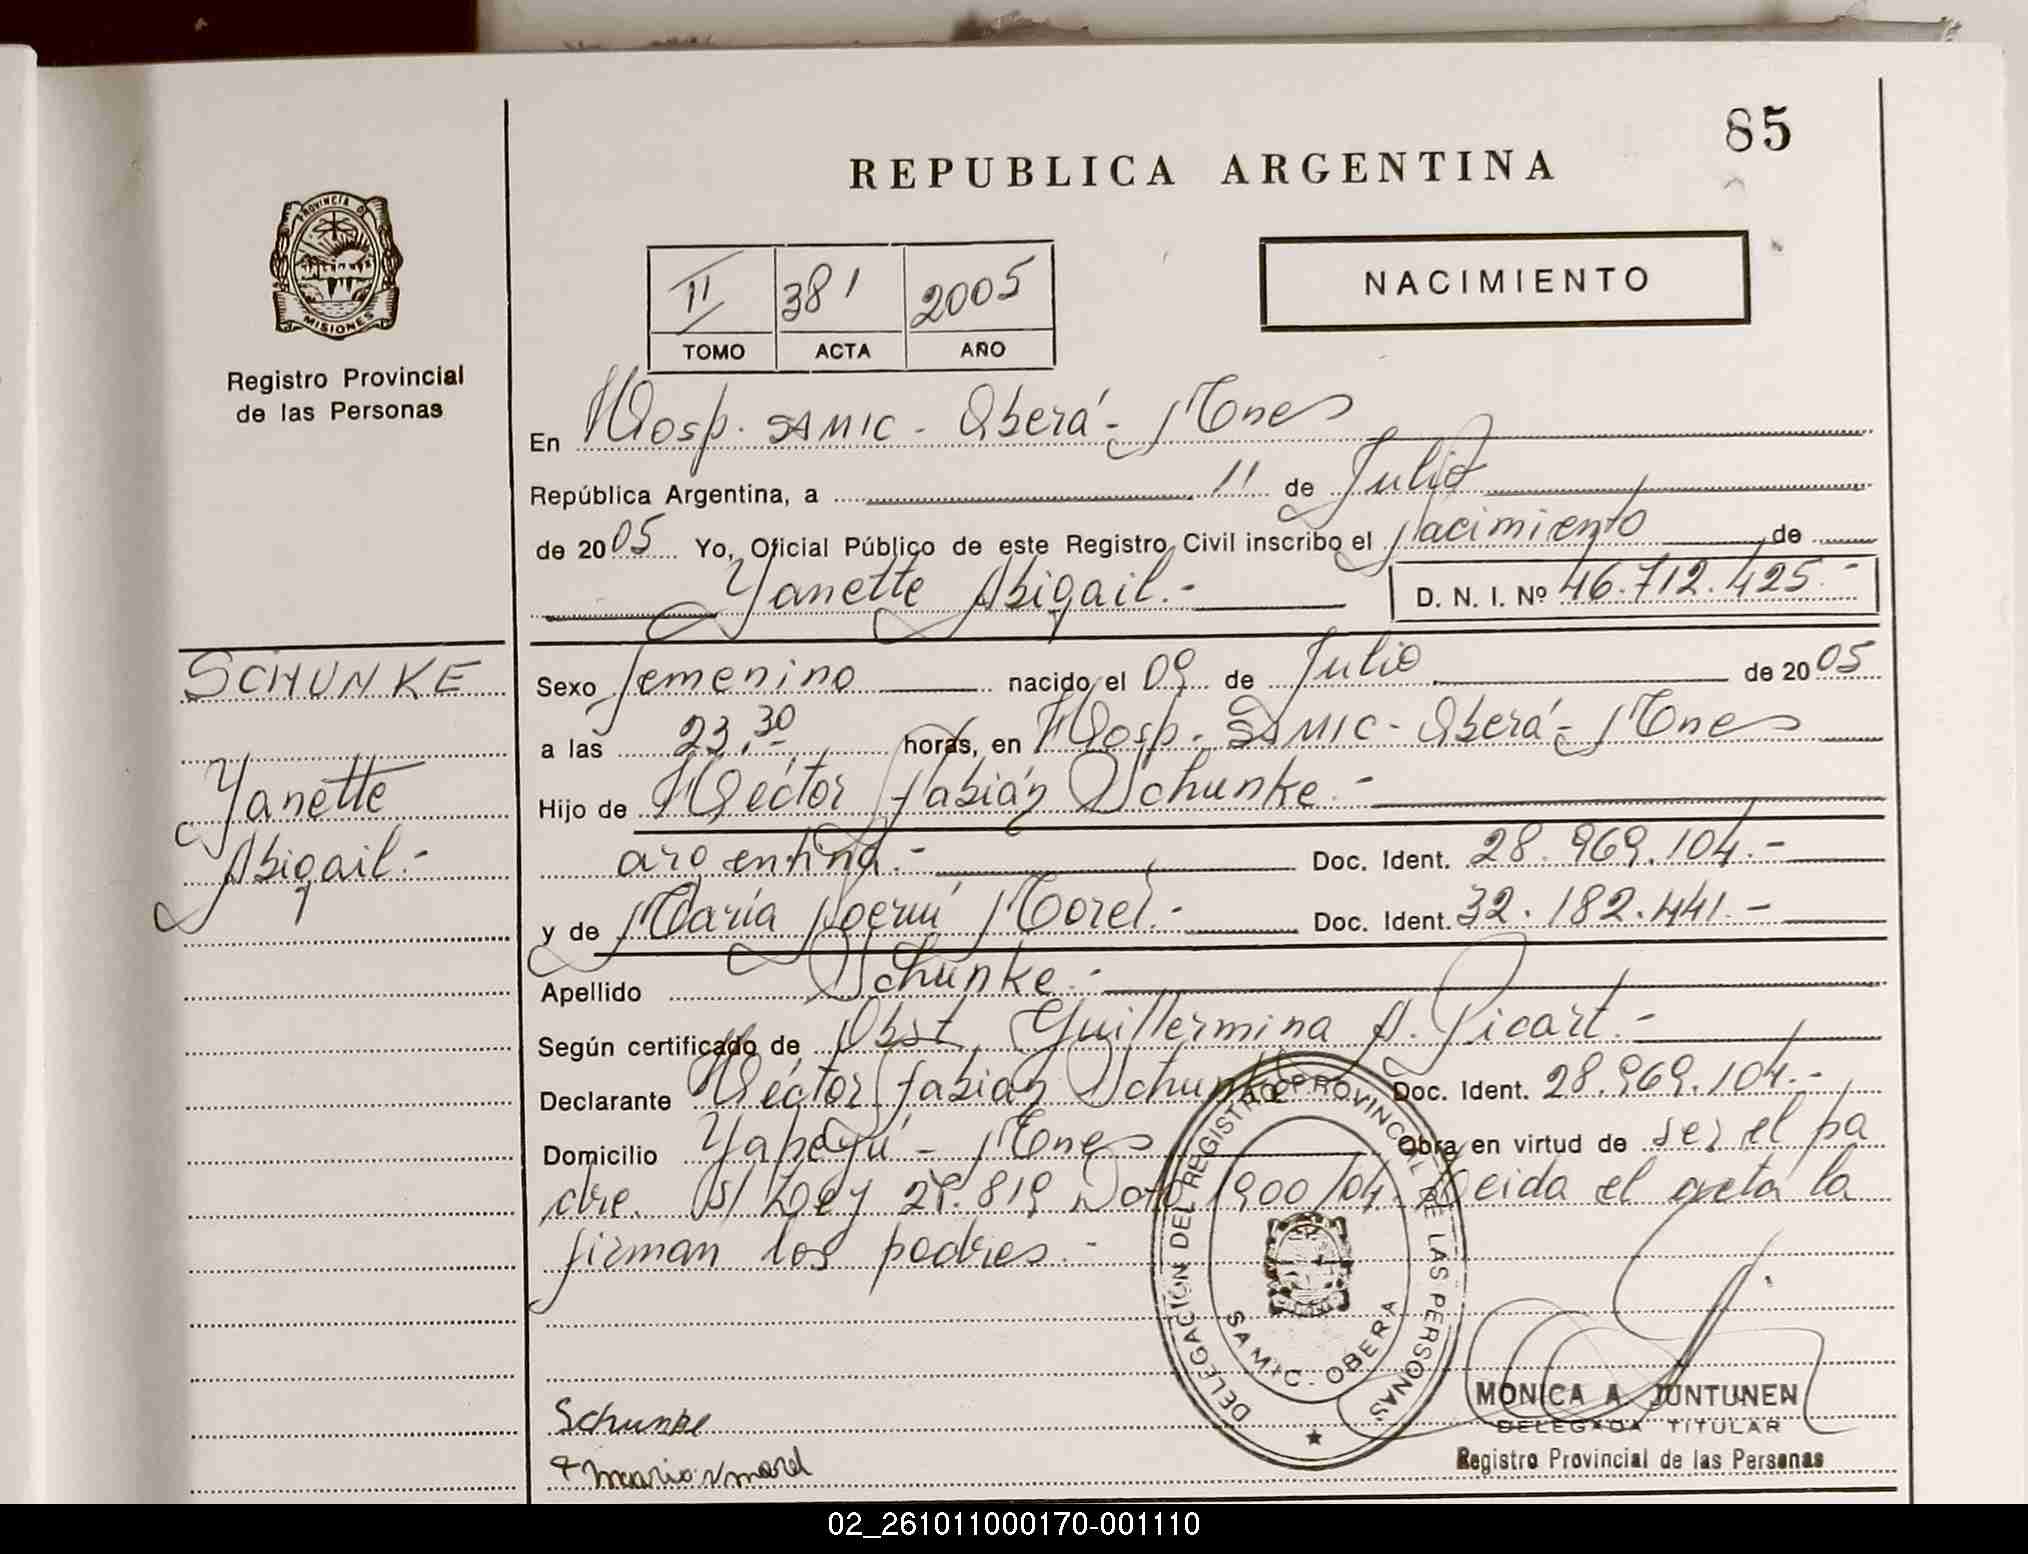 85
REPUBLICA ARGENTINA
PROVINCIA DE
MISIONES
Registro Provincial
de las Personas
II 381 2005
TOMO ACTA AÑO
NACIMIENTO
En Hosp. SAMIC - Oberá - Mnes
República Argentina, a 11 de Julio
de 2005 Yo, Oficial Público de este Registro Civil inscribo el Nacimiento de
Yanette Abigail.- D. N. I. Nº 46.712.425.-
SCHUNKE
Yanette
Abigail.-
Sexo femenino nacido el 09 de Julio de 2005
a las 23,30 horas, en Hosp. SAMIC - Oberá - Mnes
Hijo de Héctor Fabián Schunke.-
argentina.- Doc. Ident. 28.969.104.-
y de María Noemí Morel.- Doc. Ident. 32.182.441.-
Apellido Schunke.-
Según certificado de Obst. Guillermina A. Picart.-
Declarante Héctor Fabián Schunke Doc. Ident. 28.969.104.-
Domicilio Yapeyú - Mnes Obra en virtud de ser el pa
dre. S/ Ley 25.819 Dcto 1900/04. Leida el acta la
firman los padres.-
DELEGACIÓN DEL REGISTRO PROVINCIAL DE LAS PERSONAS
SAMIC. OBERA
Schunke
MONICA A. JUNTUNEN
DELEGADA TITULAR
Registro Provincial de las Personas
02_261011000170-001110